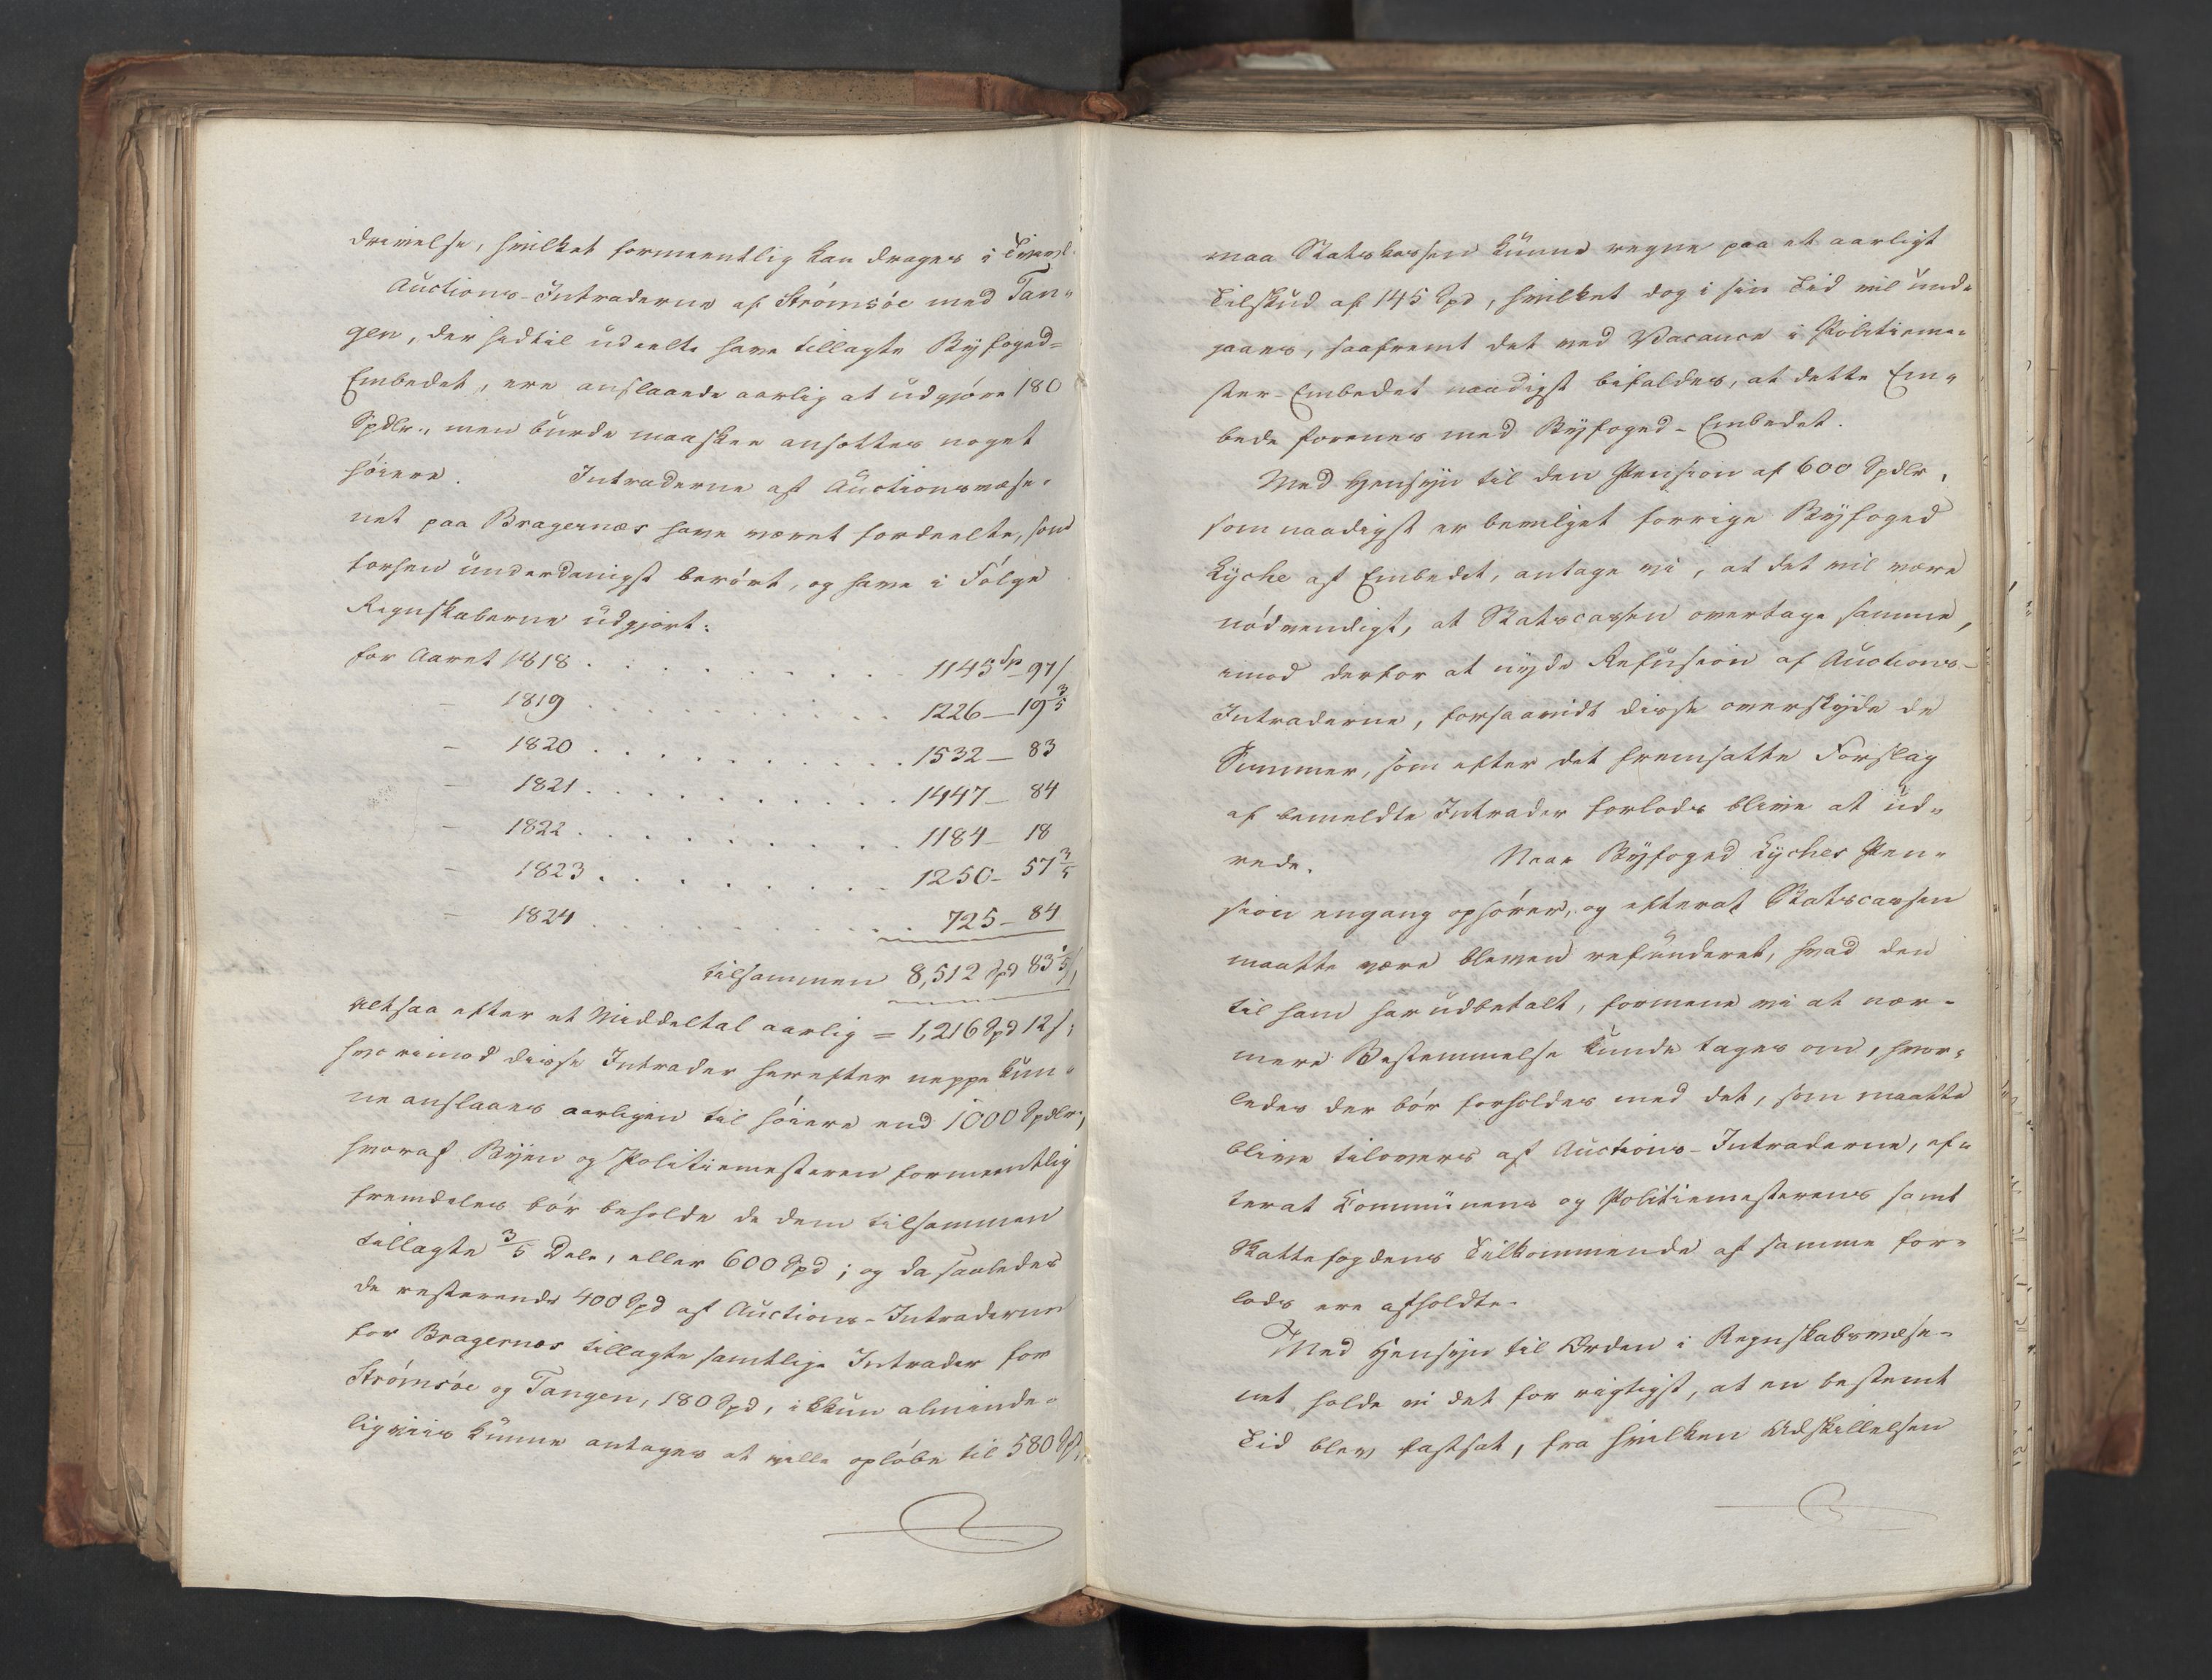 drivelse, hvilket formeentlig kan drages i Tvivl.
Auctions-Intraderne af Strømsöe med Tan-
gen, der hidtil udeelte have tillagte Byfoged-
Embedet, ere anslaaede aarlig at udgjøre 180
Spdlr., men burde maaskee ansættes noget
høiere. Intraderne af Auctionsvæse-
net paa Bragernæs have været fordeelte, som
forhen underdanigst berørt, og have i Følge
Regnskaberne udgjort:
for Aaret 1818 . . . . . . . . 1145 Sp 97 ſ
- 1819 . . . . . . . . 1226 — 19 3/5
- 1820 . . . . . . . . 1532 — 83
- 1821 . . . . . . . . 1447 — 84
- 1822 . . . . . . . . 1184 — 18
- 1823 . . . . . . . . 1250 — 57 3/5
- 1824 . . . . . . . . 725 — 84
tilsammen 8,512 Spd 83 1/5 ſ,
altsaa efter et Middeltal aarlig = 1,216 Spd 12 ſ;
hvorimod disse Intrader herefter neppe kun-
ne anslaaes aarligen til høiere end 1000 Spdlr.,
hvoraf Byen og Politiemesteren formeentlig
fremdeles bør beholde de dem tilsammen
tillagte 3/5 Dele, eller 600 Spd; og da saaledes
de resterende 400 Spd af Auctions-Intraderne
for Bragernæs tillagte samtlige Intrader for
Strømsöe og Tangen, 180 Spd, ikkun alminde-
ligviis kunne antages at ville opløbe til 580 Spd,
maa Statskassen kunne regne paa et aarligt
Tilskud af 145 Spd, hvilket dog i sin Tid vil und-
gaaes, saafremt det ved Vacance i Politieme-
ster-Embedet naadigst bifaldes, at dette Em-
bede forenes med Byfoged-Embedet.
Med Hensyn til den Pension af 600 Spdlr,
som naadigst er bevilget forrige Byfoged
Lyche af Embedet, antage vi, at det vil være
nødvendigt, at Statscassen overtage samme,
imod derfor at nyde Refusion af Auctions-
Intraderne, forsaavidt disse overskyde de
Summer, som efter det fremsatte Forslag
af bemeldte Intrader forlods blive at ud-
rede. Naar Byfoged Lyches Pen-
sion engang ophører, og efterat Statscassen
maatte være bleven refunderet, hvad den
til ham har udbetalt, formene vi at nær-
mere Bestemmelse kunde tages om, hvor-
ledes der bør forholdes med det, som maatte
blive tilovers af Auctions-Intraderne, ef-
terat Communens og Politiemesterens samt
Skattefogdens Tilkommende af samme for-
lods ere afholdte.
Med Hensyn til Orden i Regnskabsvæse-
net holde vi det for rigtigst, at en bestemt
Tid blev fastsat, fra hvilken Adskillelsen